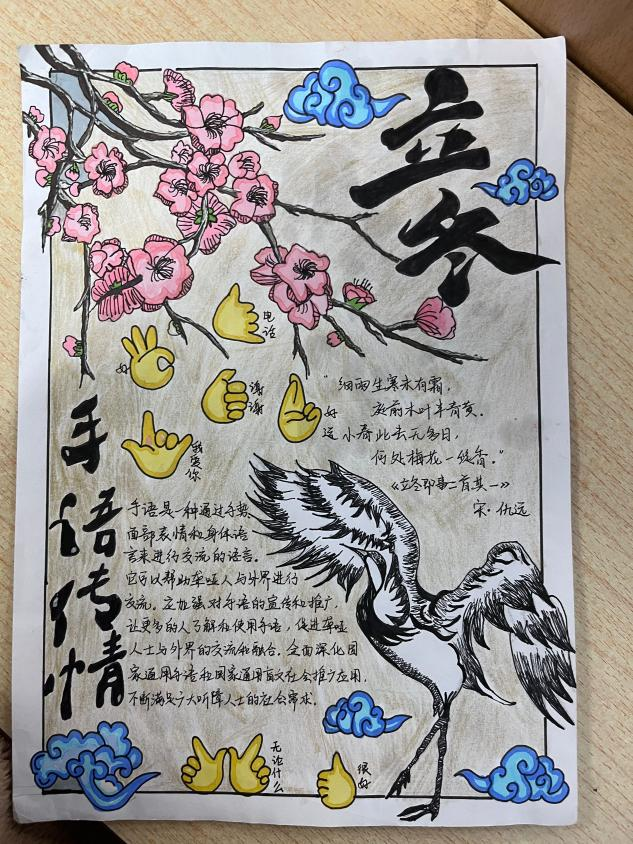 立冬
电话
好
谢谢
好运
我爱你
"细雨生寒未有霜,
庭前木叶半青黄.
小春此去无多日,
何处梅花一绽香."
《立冬即事二首其一》
宋·仇远
手语传情
手语是一种通过手势、
面部表情和身体语
言来进行交流的语言。
它可以帮助聋哑人与外界进行
交流。应加强对手语的宣传和推广,
让更多的人了解和使用手语,促进聋哑
人士与外界的交流和融合。全面深化国
家通用手语和国家通用盲文社会推广应用,
不断满足广大听障人士的社会需求.
无论什么
很好